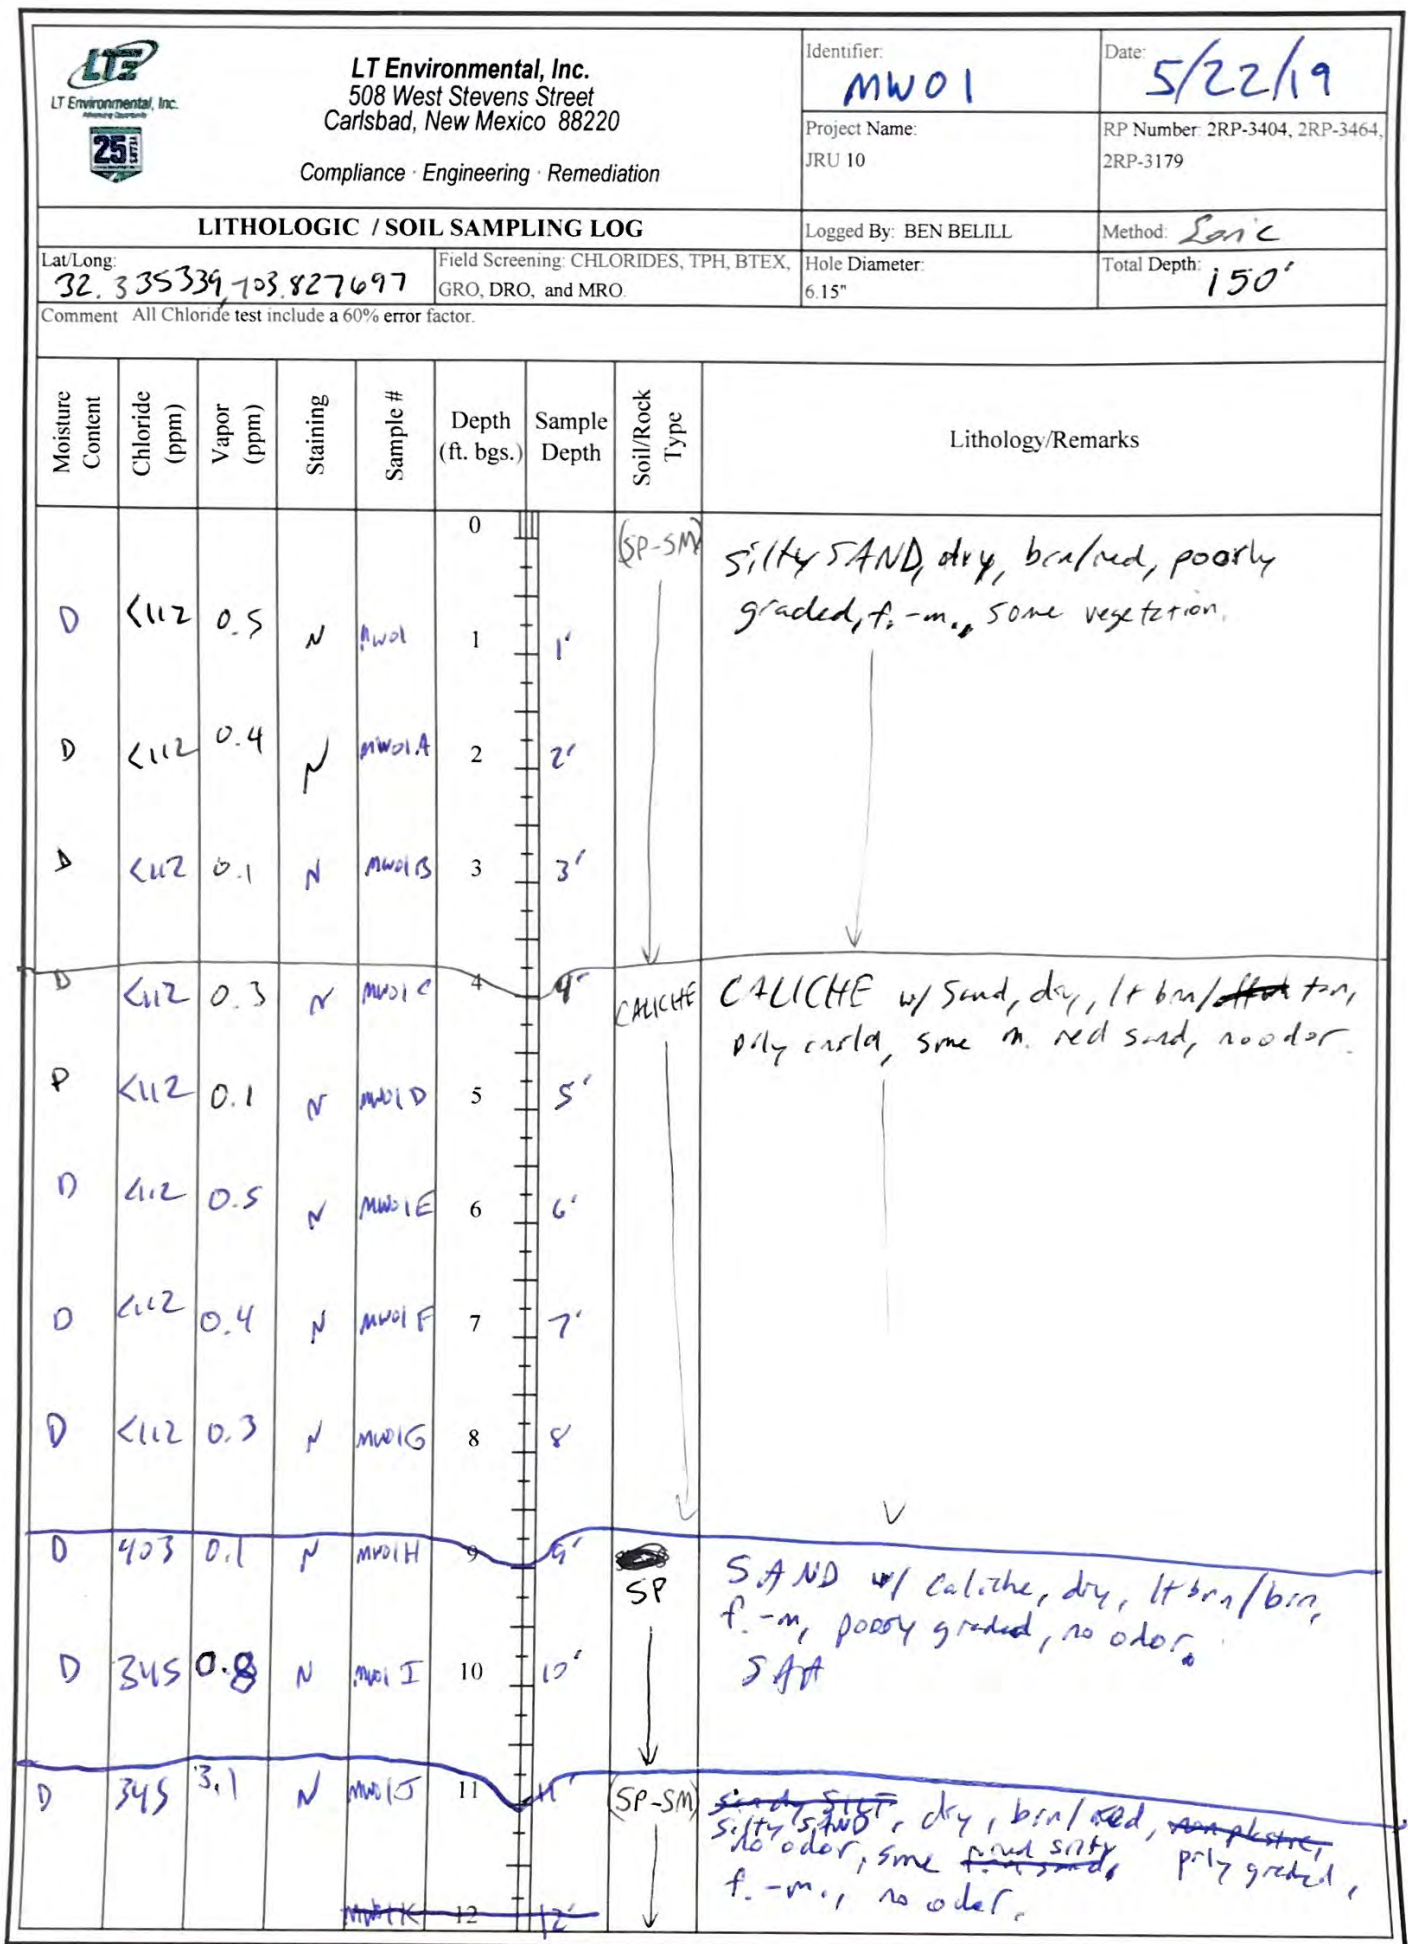 LTE
LT Environmental, Inc.
Advancing Opportunity
25 YEARS
LT Environmental, Inc.
508 West Stevens Street
Carlsbad, New Mexico 88220
Compliance · Engineering · Remediation
Identifier:
MW01
Date:
5/22/19
Project Name:
JRU 10
RP Number: 2RP-3404, 2RP-3464,
2RP-3179
LITHOLOGIC / SOIL SAMPLING LOG
Logged By: BEN BELILL
Method: Sonic
Lat/Long:
32.335339,-103.827697
Field Screening: CHLORIDES, TPH, BTEX,
GRO, DRO, and MRO.
Hole Diameter:
6.15"
Total Depth:
150'
Comment All Chloride test include a 60% error factor.
Moisture Content
Chloride (ppm)
Vapor (ppm)
Staining
Sample #
Depth (ft. bgs.)
Sample Depth
Soil/Rock Type
Lithology/Remarks
0 (SP-SM) silty SAND, dry, brn/red, poorly
graded, f.-m., some vegetation.
D <112 0.5 N MW01 1 1'
D <112 0.4 N MW01A 2 2'
D <112 0.1 N MW01B 3 3'
D <112 0.3 N MW01C 4 4' CALICHE CALICHE w/ Sand, dry, lt brn/ tan,
some m. red sand, no odor.
D <112 0.1 N MW01D 5 5'
D <112 0.5 N MW01E 6 6'
D <112 0.4 N MW01F 7 7'
D <112 0.3 N MW01G 8 8'
D 403 0.1 N MW01H 9 9' SP SAND w/ Caliche, dry, lt brn/brn,
f.-m, poory graded, no odor.
D 345 0.8 N MW01I 10 10' SAA
D 345 3.1 N MW01J 11 11' (SP-SM) sandy SILT
silty SAND, dry, brn/red, non plastic,
no odor, some prly graded,
f.-m., no odor.
MW01K 12 12'